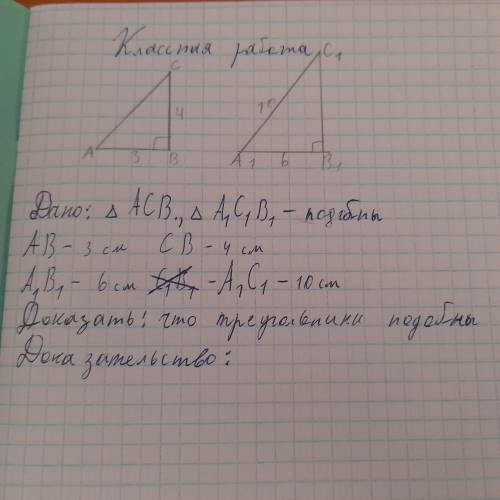 Классная работа
C C1
4 10
A 3 B A1 6 B1
Дано: △ ACB, △ A1C1B1 – подобны
AB – 3 см CB – 4 см
A1B1 – 6 см C1B1 - A1C1 – 10 см
Доказать: что треугольники подобны
Доказательство: